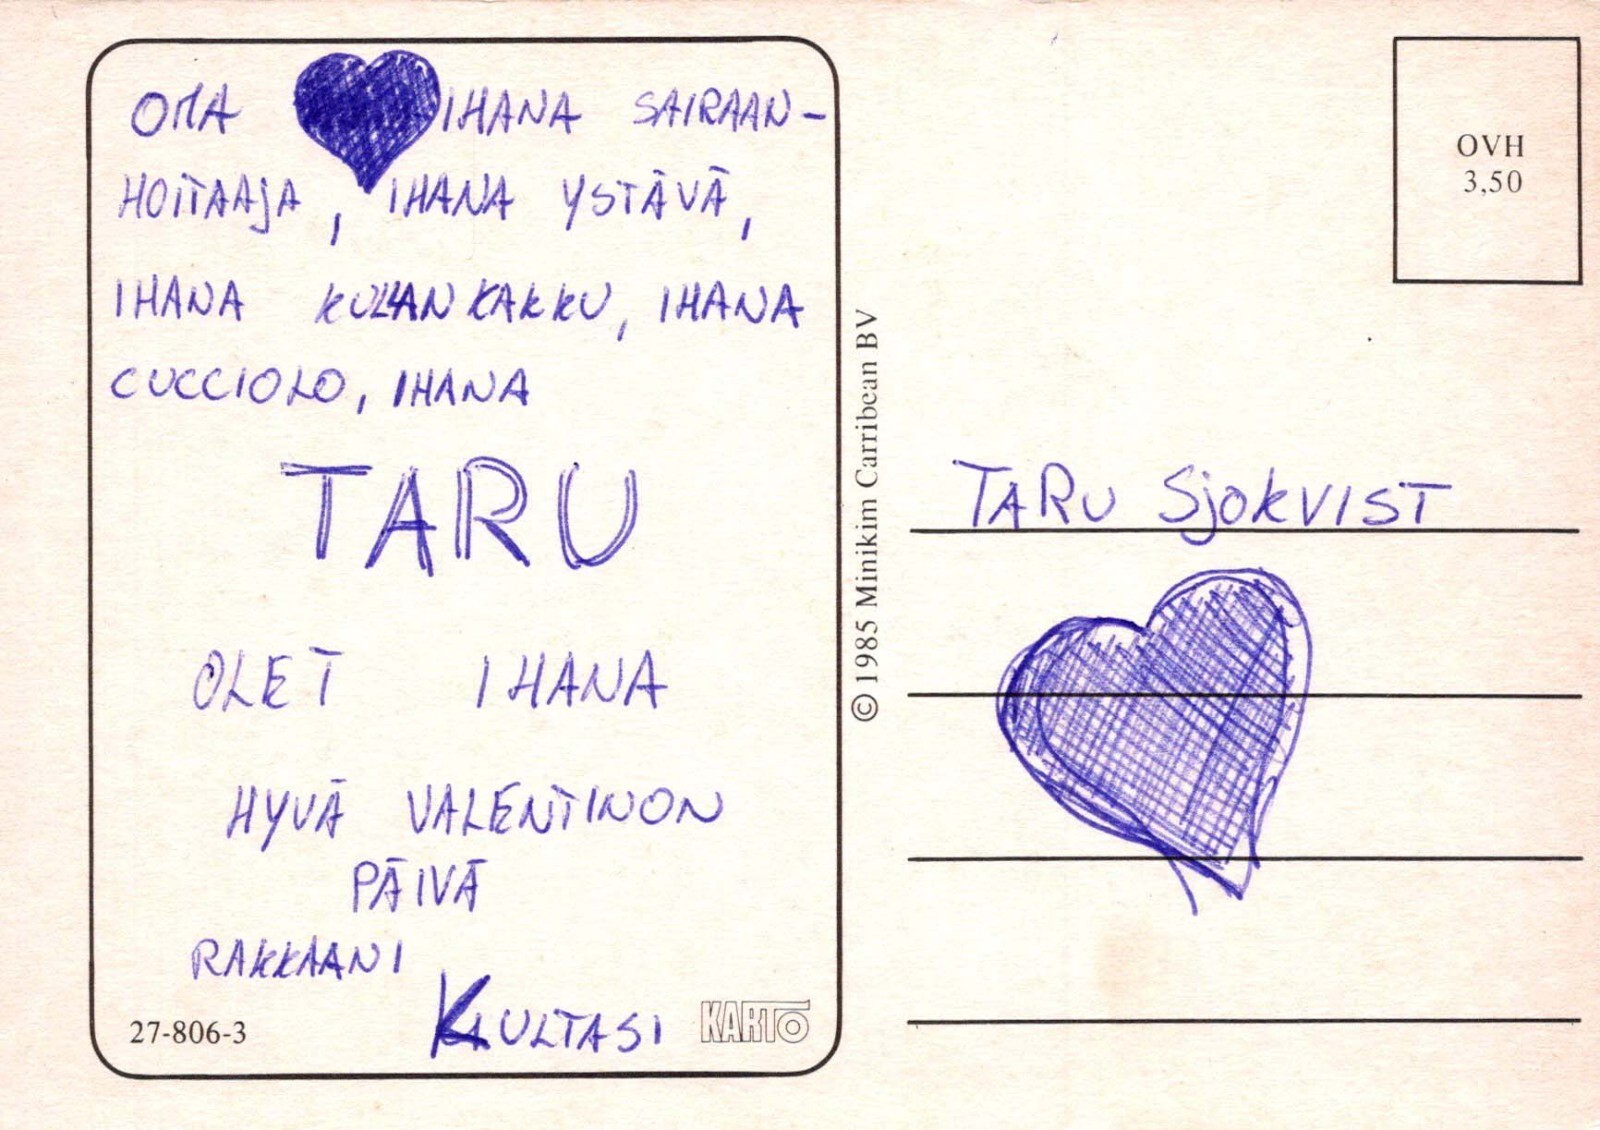 OMA IHANA SAIRAAN-
HOITAAJA, IHANA YSTÄVÄ,
IHANA KULLANKAKKU, IHANA
CUCCIOLO, IHANA
TARU
OLET IHANA
HYVÄ VALENTINON
PÄIVÄ
RAKKAANI
KULTASI
27-806-3
KARTO
© 1985 Minikim Carribean BV
OVH
3,50
TARU SJOKVIST